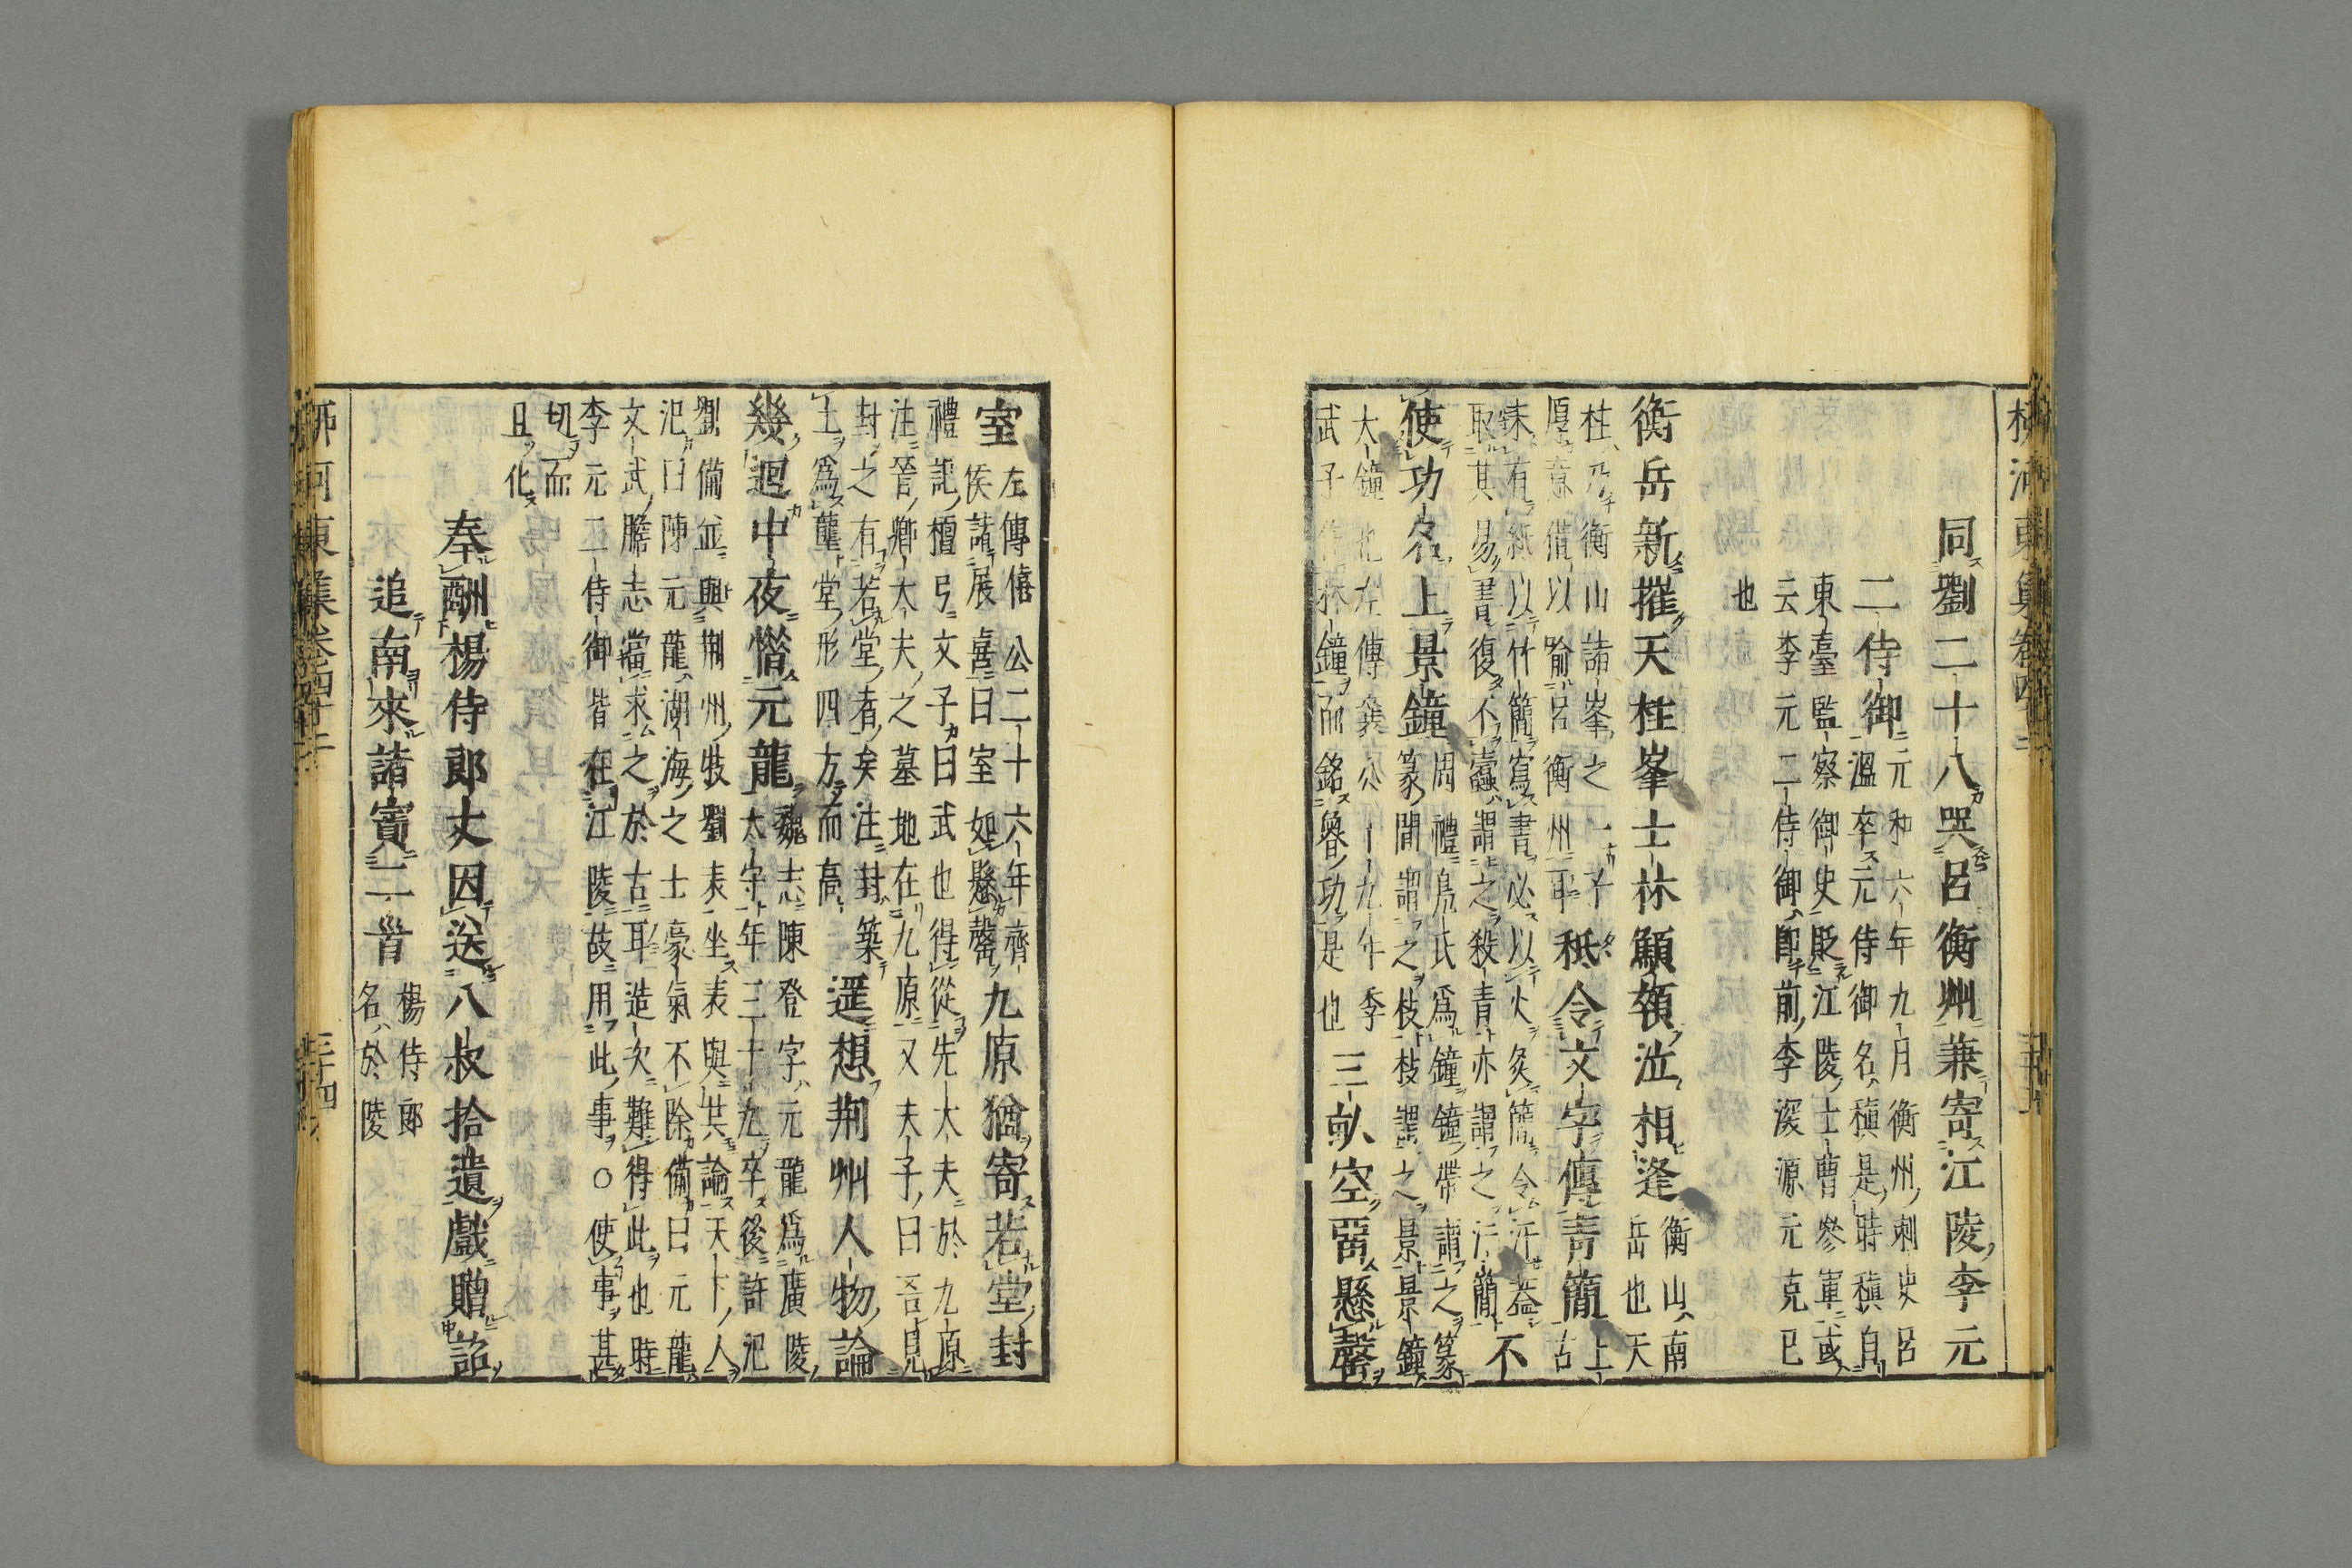 柳河東集卷四十二
同劉二十八哭呂衡州兼寄江陵李元
二侍御
元和六年九月衡州刺史呂
溫卒元侍御名稹是時稹自
東臺監察御史貶江陵士曹參軍或
云李元二侍御即前李深源元克已
也
衡岳新摧天柱峯士林顦顇泣相逢
衡山南
岳也天
柱乃衡山諸峯之一子
厚意借以喻呂衡州耳
秪令文字傳青簡
上
古
未有紙以竹簡寫書必以火炙簡令汗蓋
取其易書復不蠹謂之殺青亦謂之汗簡
不
使功名上景鐘
周禮鳧氏爲鐘鐘帶謂之篆
篆間謂之枝枝謂之景景鐘
大鐘也左傳襄公十九年季
武子作林鐘而銘魯功是也
三畝空畱懸罄
室
左傳僖公二十六年齊
侯諸展喜曰室如懸罄
九原猶寄若堂封
禮記檀弓文子曰武也得從先大夫於九原
注晉卿大夫之墓地在九原又夫子曰吾見
封之有若堂者矣注封築
土爲壟堂形四方而高
遥想荆州人物論
幾迴中夜憯元龍
魏志陳登字元龍爲廣陵
太守年三十九卒後許汜
劉備並與荆州牧劉表坐表與共論天下人
汜曰陳元龍湖海之士豪氣不除備曰元龍
文武膽志當求之於古耳造次難得此也時
李元二侍御皆在江陵故用此事○使事甚
切而
且化
奉酬楊侍郎丈因送八叔拾遺戲贈詔
追南來諸賓二首
楊侍郎
名於陵
柳河東集卷四十二
三十四